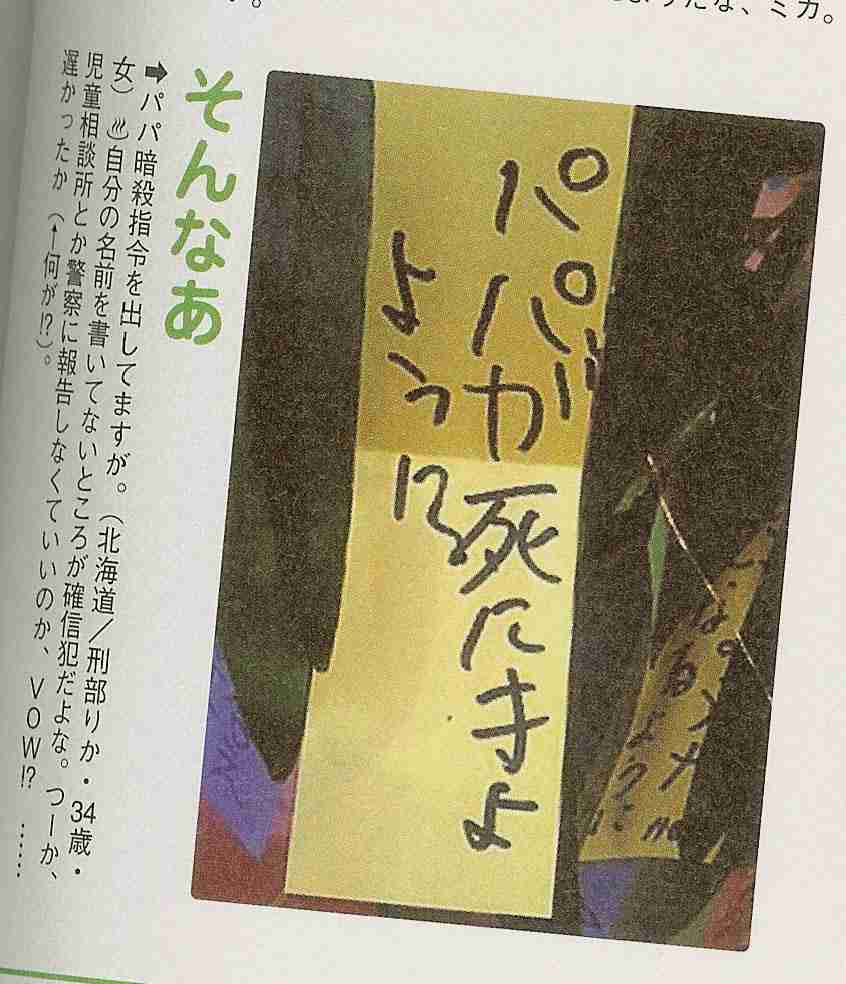 ようだな、ミカ。
パパが死にまよ
ように
るように
そんなあ
➡パパ暗殺指令を出してますが。(北海道／刑部りか・34歳・
女)♨自分の名前を書いてないところが確信犯だよな。つーか、
児童相談所とか警察に報告しなくていいのか、VOW!? ……
遅かったか(↑何が!?)。